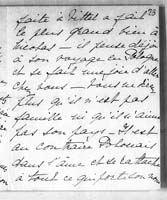 73
faite à Vittel a fait
le plus grand bien à
Nicolas — il pense déjà
à son voyage en Pologne
et se fait une joie d'aller
chez vous —
plus qu'il n'est pas
famille ni qu'il n'aime
pas son pays — Il est
au contraire Polonais
dans l'âme et se rattache
à tout ce qui